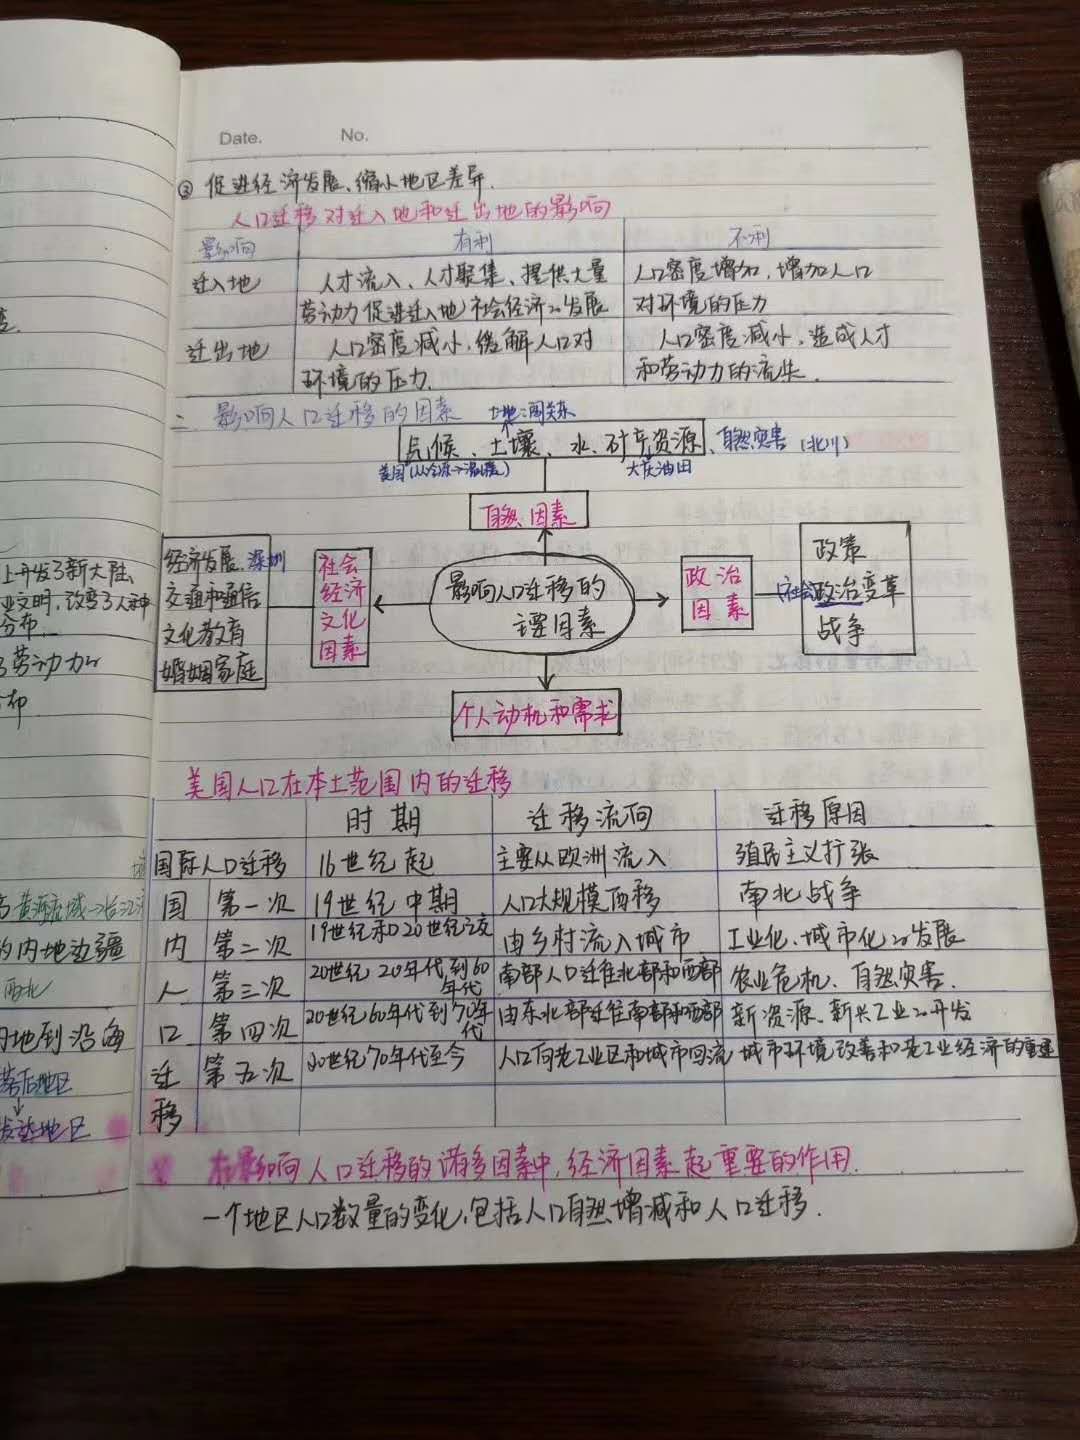 Date. No.
③ 促进经济发展、缩小地区差异.
人口迁移对迁入地和迁出地的影响
影响 有利 不利
迁入地 人才流入、人才聚集、提供大量 人口密度增加,增加人口
劳动力促进迁入地社会经济的发展 对环境的压力
迁出地 人口密度减小,缓解人口对 人口密度减小,造成人才
环境的压力. 和劳动力的流失.
二、影响人口迁移的因素 土地:闯关东
气候、土壤、水、矿产资源、自然灾害(北川)
美国(从冷冻→温暖) 大庆油田
自然因素
经济发展.深圳
交通和通信
文化教育
婚姻家庭
社会
经济
文化
因素
影响人口迁移的
主要因素
政治
因素
政策
(社会)政治变革
战争
个人动机和需求
美国人口在本土范围内的迁移
时期 迁移流向 迁移原因
国际人口迁移 16世纪起 主要从欧洲流入 殖民主义扩张
国 第一次 19世纪中期 人口大规模西移 南北战争
内 第二次 19世纪和20世纪之交 由乡村流入城市 工业化、城市化的发展
人 第三次 20世纪20年代到60年代 南部人口迁往北部和西部 农业危机、自然灾害.
口 第四次 20世纪60年代到70年代 由东北部迁往南部和西部 新资源、新兴工业的开发
迁 第五次 20世纪70年代至今 人口向老工业区和城市回流 城市环境改善和老工业经济的重建
移
在影响人口迁移的诸多因素中,经济因素起重要的作用.
一个地区人口数量的变化,包括人口自然增减和人口迁移.
上开发了新大陆,
业文明,改变了人种
分布.
劳动力的
布.
黄河流域→长江
的内地边疆
西北
内地到沿海
落后地区
↓
发达地区